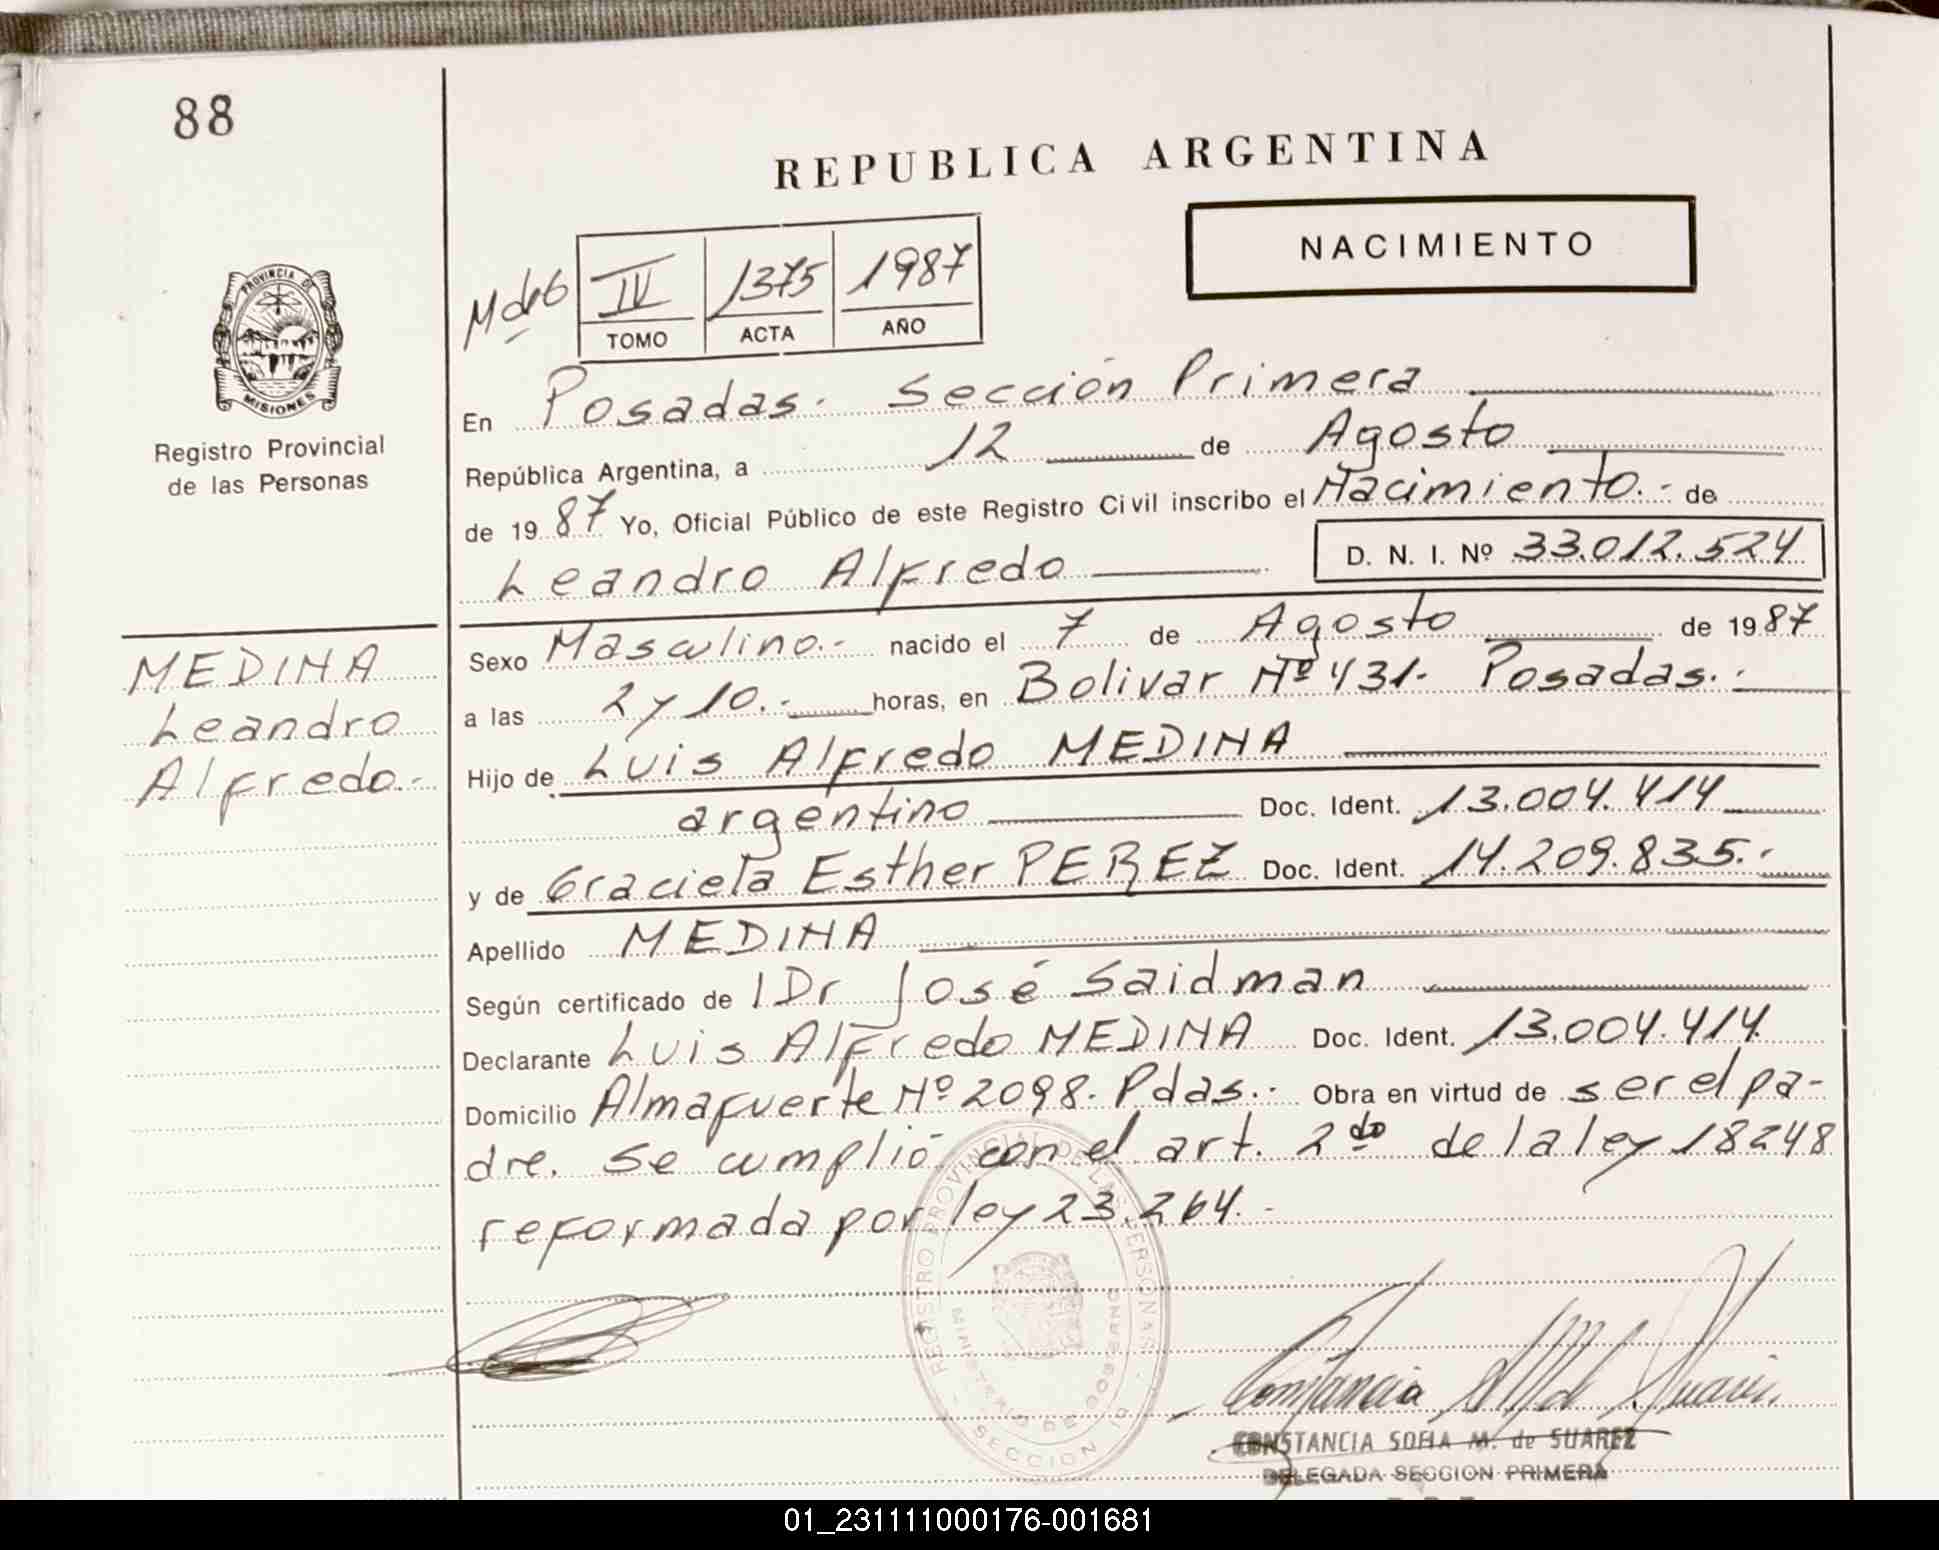 88
REPUBLICA ARGENTINA
NACIMIENTO
IV 1375 1987
TOMO ACTA AÑO
PROVINCIA DE
MISIONES
Registro Provincial
de las Personas
En Posadas. Sección Primera
República Argentina, a 12 de Agosto
de 1987 Yo, Oficial Público de este Registro Civil inscribo el Nacimiento.- de
Leandro Alfredo D. N. I. Nº 33.012.524
MEDINA
Leandro
Alfredo.-
Sexo Masculino.- nacido el 7 de Agosto de 1987
a las 2 y 10.- horas, en Bolivar Nº 431. Posadas.-
Hijo de Luis Alfredo MEDINA
argentino Doc. Ident. 13.004.414
y de Graciela Esther PEREZ Doc. Ident. 14.209.835.-
Apellido MEDINA
Según certificado de Dr José Saidman
Declarante Luis Alfredo MEDINA Doc. Ident. 13.004.414.
Domicilio Almafuerte Nº 2098. Pdas.- Obra en virtud de ser el pa-
dre. Se cumplió con el art. 2do de la ley 18248
reformada por ley 23.264.-
REGISTRO PROVINCIAL DE LAS PERSONAS
MINISTERIO DE GOBIERNO
SECCION
Constancia S M de Suarez
CONSTANCIA SOFIA M. de SUAREZ
DELEGADA SECCION PRIMERA
01_231111000176-001681